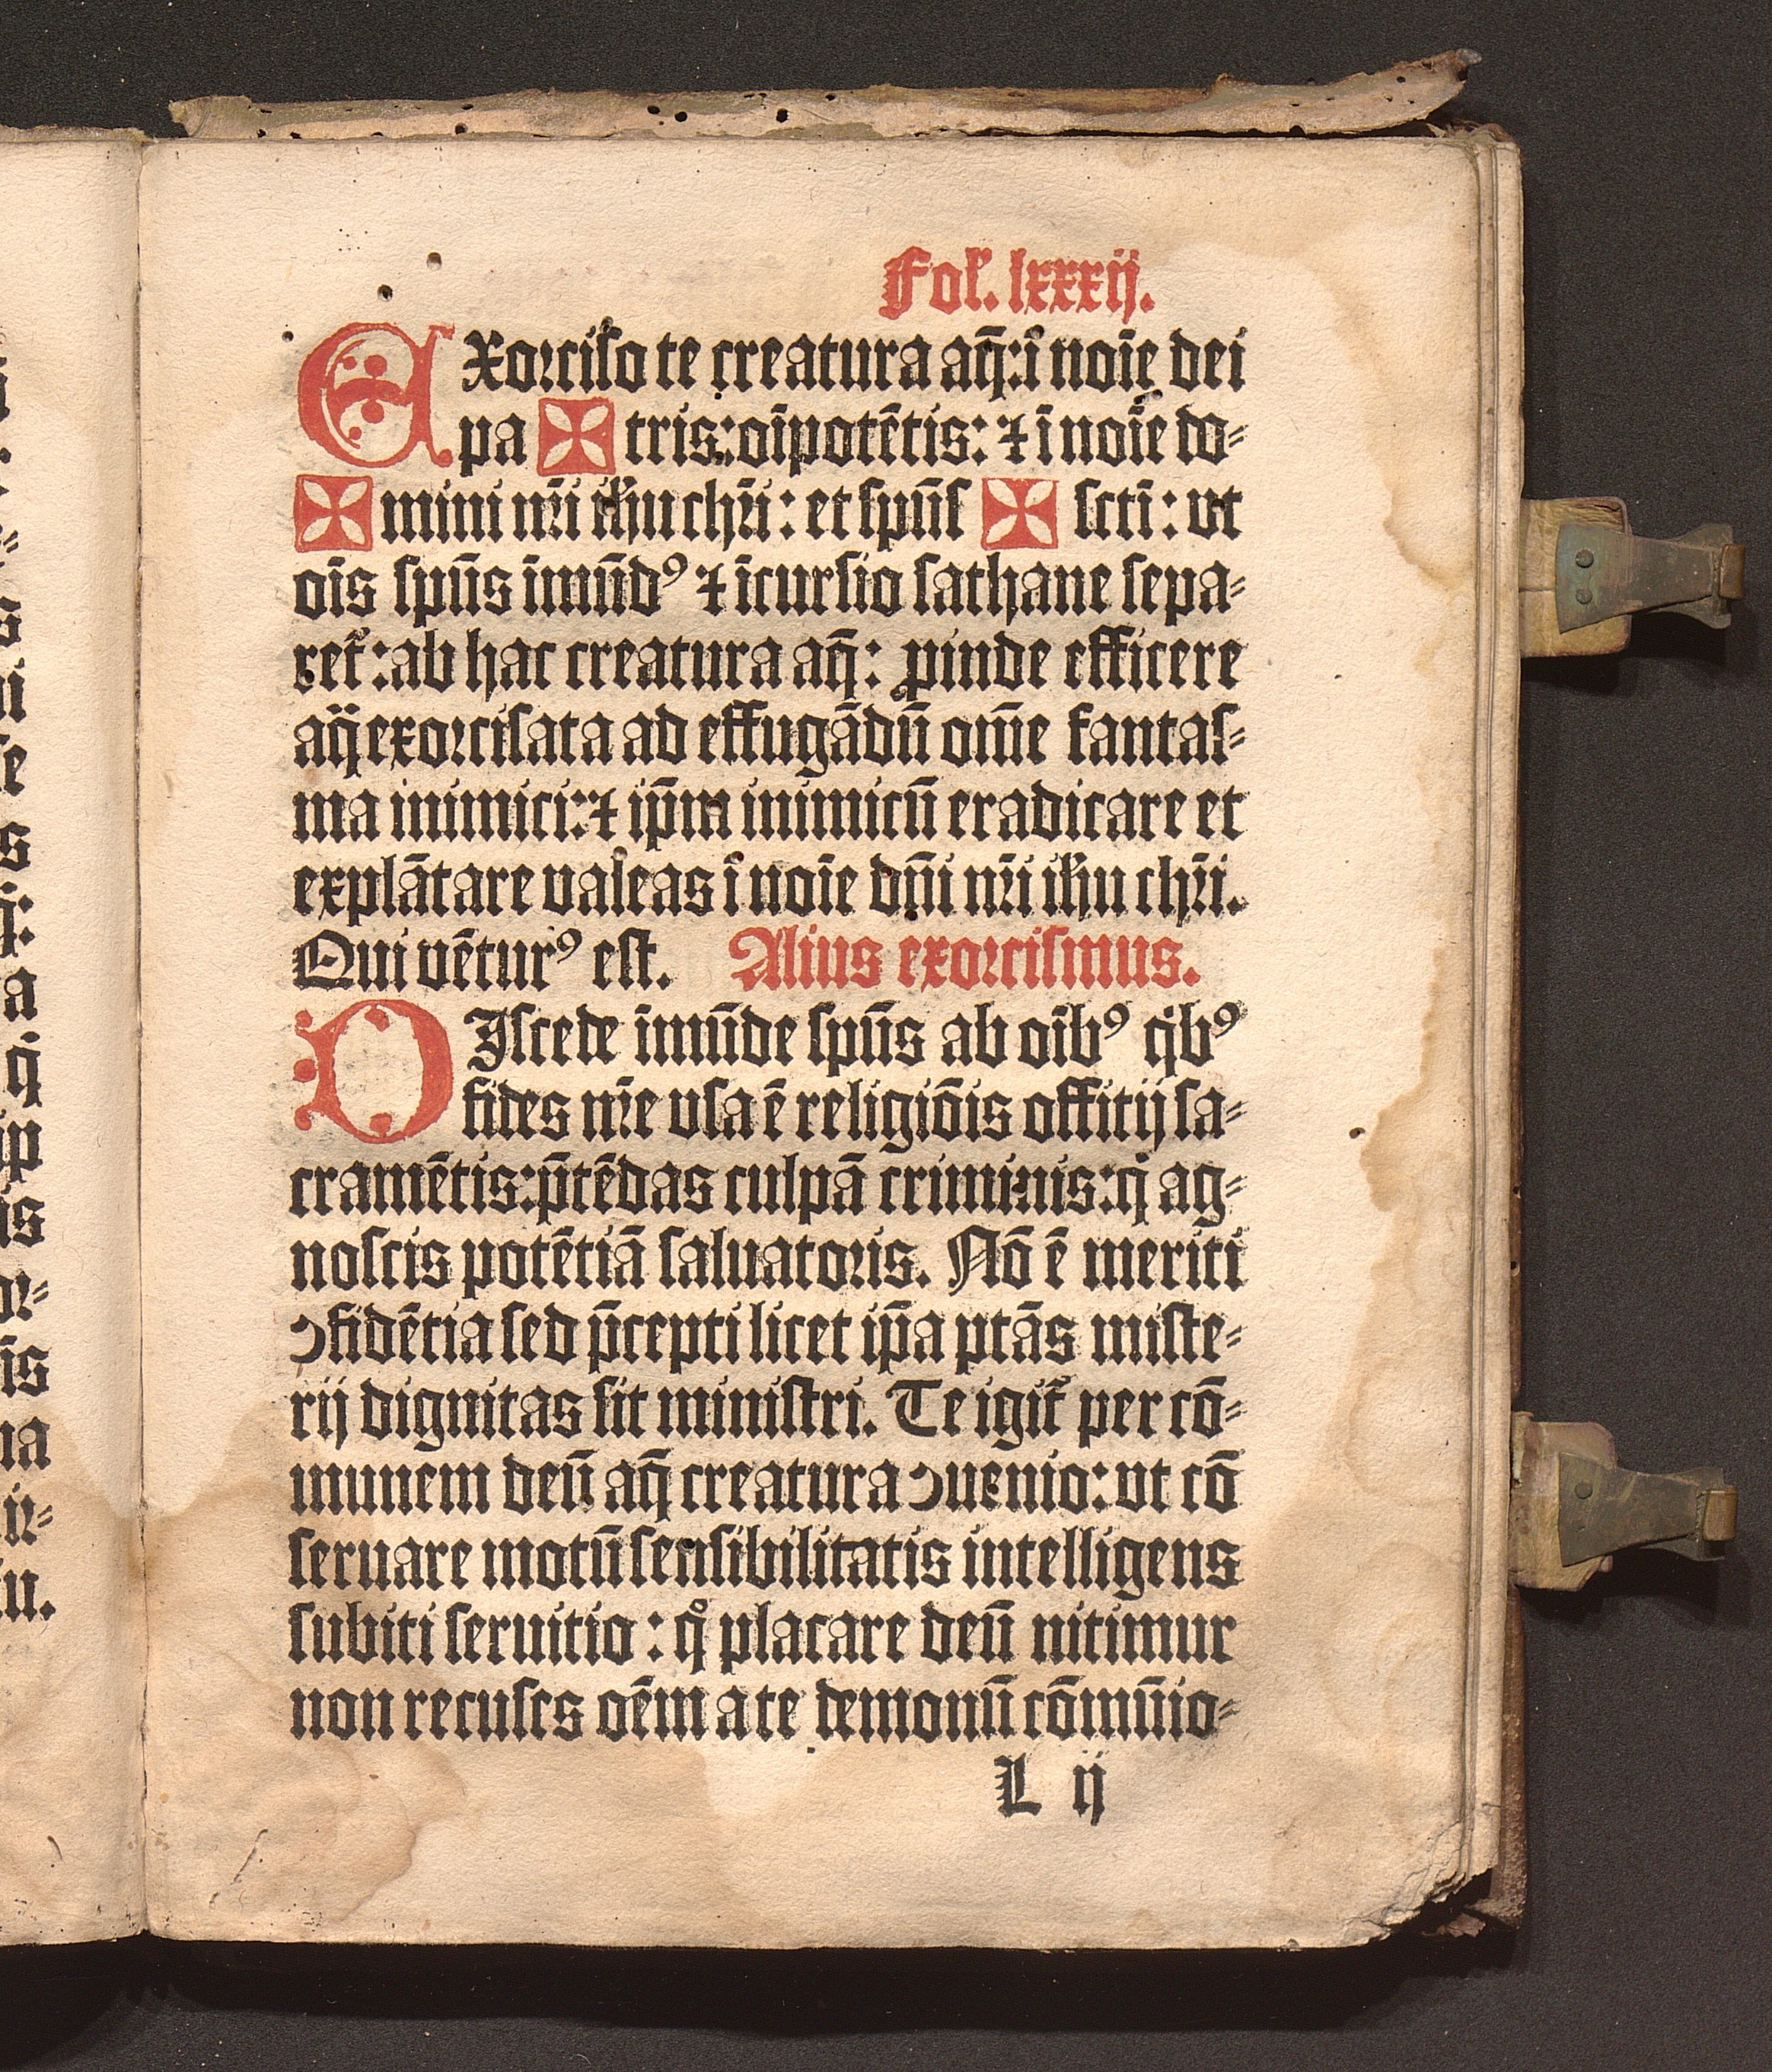 Fol’. lxxxij.
EXorciſo te creatura aq̄: ī noīe dei
pa ✠ tris: oīpotētis: ⁊ ī noīe do⸗
✠ mini nr̄i iħu chr̄i: et ſpūſ ✠ ſcti̅: vt
oīs ſpūs īmūdꝰ ⁊ īcurſio ſathane ſepa⸗
ret᷑: ab hac creatura aq̄: ꝓinde efficere
aq̄ exorciſata ad effugādū om̄e fantaſ⸗
ma inimici: ⁊ ip̄m inimicū eradicare et
explātare valeas ī noīe dn̄i nr̄i iħu chr̄i.
Qui vēturꝰ eſt. Alius exorciſmus.
DIſcede īmūde ſpūs ab oībꝰ qͥbꝰ
fides nr̄e vſa ē religiōis offitij ſa⸗
cramētis: p̄tēdas culpā criminis: qͥ ag⸗
noſcis potētiā ſaluatoris. Nō ē meriti
ꝯfidētia ſed p̄cepti licet ip̄a ptās miſte⸗
rij dignitas ſit miniſtri. Te igit᷑ per cō⸗
munem deū aq̄ creatura ꝯuenio: vt cō
ſeruare motū ſenſibilitatis intelligens
ſubiti ſeruitio: qͦ placare deū nitimur
non recuſes oēm a te demonū cōmūio⸗
L ij